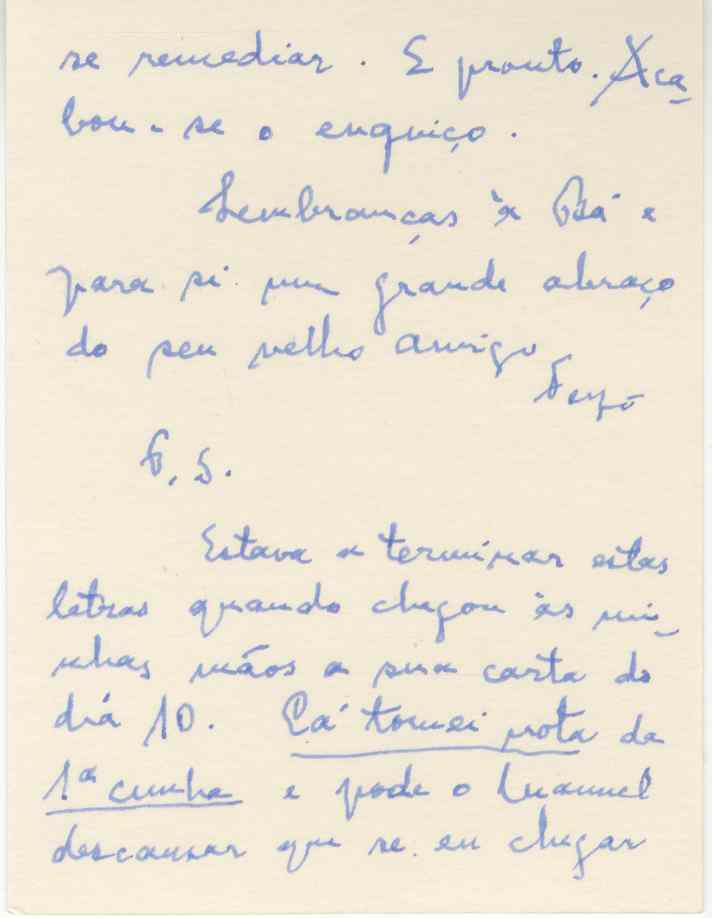 se remediar. E pronto. Aca-
bou-se o enguiço.
Lembranças à Bá e
para si um grande abraço
do seu velho amigo
P.S.
Estava a terminar estas
letras quando chegou às mi-
nhas mãos a sua carta do
diá 10. Cá tomei nota da
1ª cunha e pode o Manuel
descansar que se eu chegar